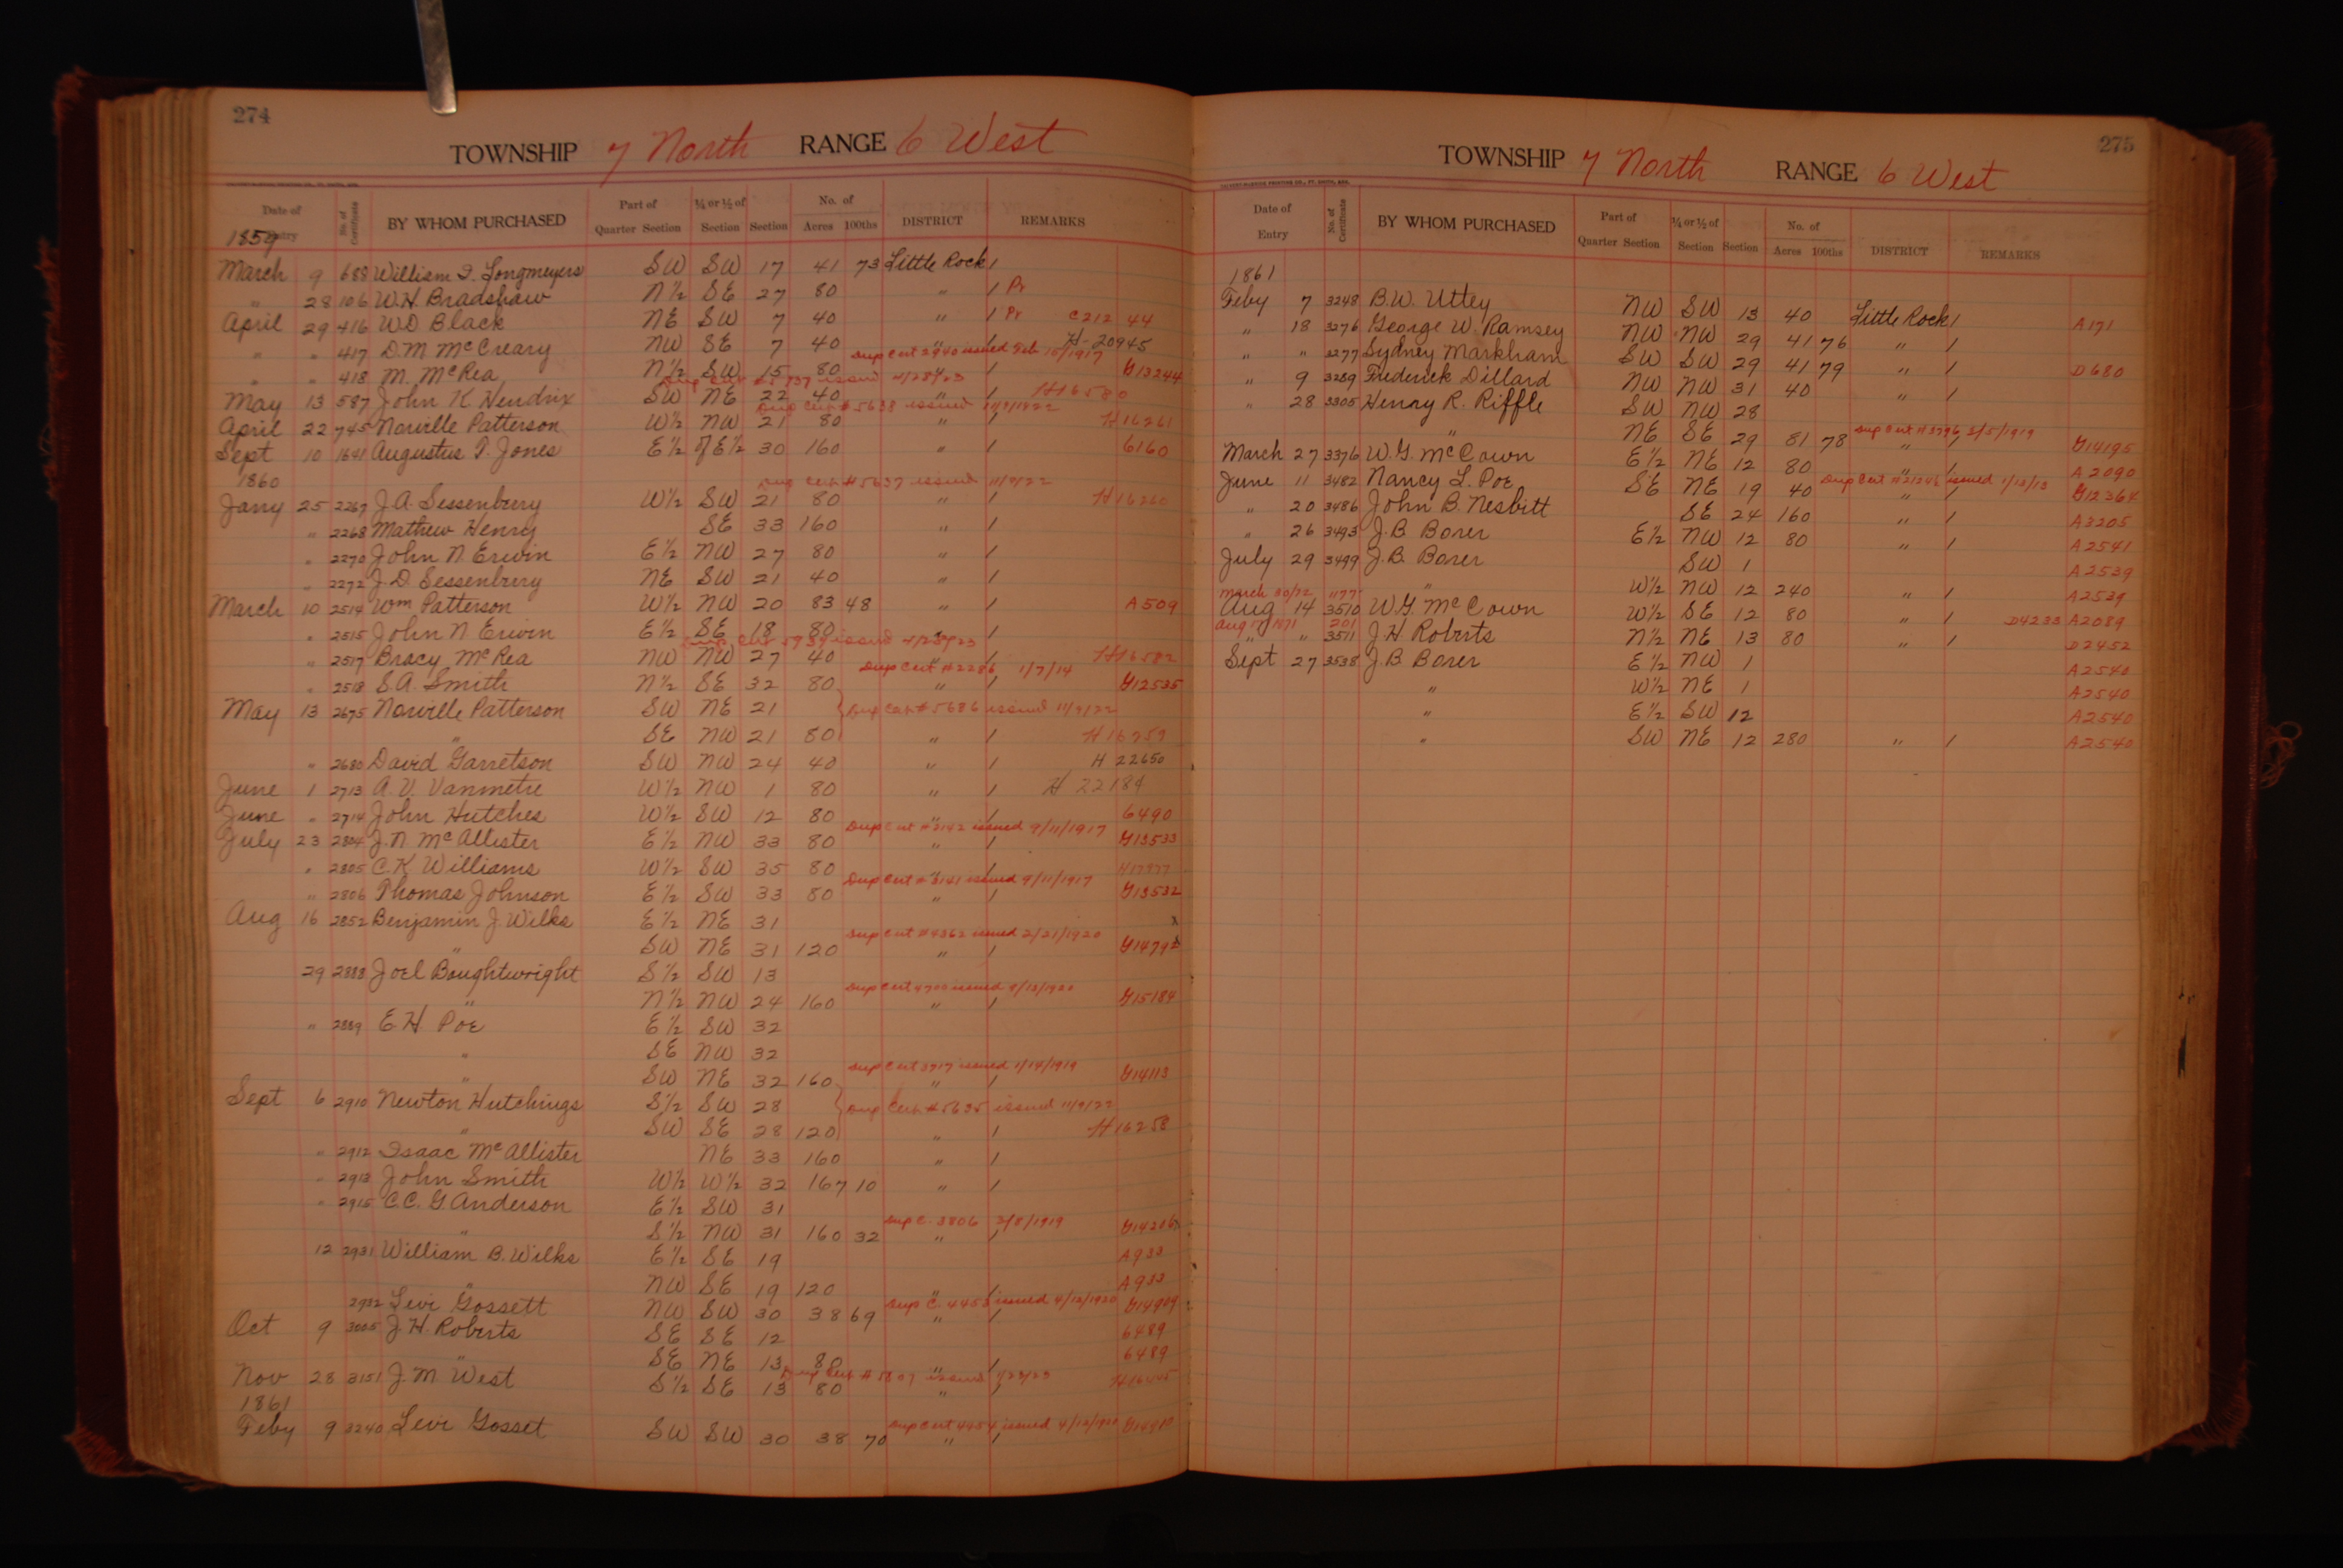 274
TOWNSHIP 7 North RANGE 6 West
Date of Entry No. of Certificate BY WHOM PURCHASED Part of Quarter Section ¼ or ½ of Section Section No. of Acres 100ths DISTRICT REMARKS
1859
March 9 688 William I. Longmeyers SW SW 17 41 73 Little Rock /
" 28 106 W.H. Bradshaw N½ SE 27 80 " / Pr
April 29 416 W.D Black NE SW 7 40 " / Pr C212 44
" " 417 D.M. McCreary NW SE 7 40 " / H-20945
Dup Cert 2940 issued Feb 10/1917
" " 418 M. McRea N½ SW 15 80 " / G13244
issued 4/28/23
May 13 587 John K Hendrix SW NE 22 40 " / H16580
Dup Cert #5638 issued 11/9/1922
April 22 745 Norville Patterson W½ NW 21 80 " / H16261
Sept 10 1641 Augustus P. Jones E½ of E½ 30 160 " / 6160
1860
Dup Cert #5637 issued 11/9/22
Jany 25 2267 J.A. Sessenbury W½ SW 21 80 " / H16260
" 2268 Mathew Henry SE 33 160 " /
" 2270 John N. Erwin E½ NW 27 80 " /
" 2272 J.D. Sessenbury NE SW 21 40 " /
March 10 2514 Wm Patterson W½ NW 20 83 48 " / A509
" 2515 John N. Erwin E½ SE 18 80 " /
Dup Cert 5939 issued 4/28/23
" 2517 Bracy McRea NW NW 27 40 " / H16582
Dup Cert #2286 1/7/14
" 2518 S.A. Smith N½ SE 32 80 " / G12535
May 13 2675 Norville Patterson SW NE 21 Dup Cert #5686 issued 11/9/22
" SE NW 21 80 " / H16259
" 2680 David Garretson SW NW 24 40 " / H 22650
June 1 2713 A.V. Vanmetre W½ NW 1 80 " / H 22184
June " 2714 John Hutches W½ SW 12 80 " / 6490
Dup Cert #3142 issued 9/11/1917
July 23 2804 J.N. McAllister E½ NW 33 80 " / G13533
" 2805 C.K. Williams W½ SW 35 80 " / H17977
Dup Cert #3141 issued 9/11/1917
" 2806 Thomas Johnson E½ SW 33 80 " / G13532
Aug 16 2852 Benjamin J. Wilks E½ NE 31 x
Dup Cert #4362 issued 2/21/1920
" SW NE 31 120 " / G14792
29 2888 Joel Boughtwright S½ SW 13
Dup Cert 4700 issued 9/13/1920
" N½ NW 24 160 " / G15184
" 2889 E.H. Poe E½ SW 32
" SE NW 32
Dup Cert 3717 issued 1/14/1919
" SW NE 32 160 " / G14113
Sept 6 2910 Newton Hutchings S½ SW 28 Dup Cert #5635 issued 11/9/22
" SW SE 28 120 " / H16258
" 2912 Isaac McAllister NE 33 160 " /
" 2913 John Smith W½ W½ 32 167 10 " /
" 2915 C.C. G. Anderson E½ SW 31
Dup C. 3806 3/8/1919
" S½ NW 31 160 32 " / G14206
12 2931 William B. Wilks E½ SE 19 A933
" NW SE 19 120 " / A933
Dup C. 4453 issued 4/12/1920
2932 Levi Gossett NW SW 30 38 69 " / G14909
Oct 9 3005 J.H. Roberts SE SE 12 6489
" SE NE 13 80 " / 6489
Dup Cert #5807 issued 1/23/23
Nov 28 3151 J.M. West S½ SE 13 80 " / H16445
1861
Dup Cert 4454 issued 4/12/1920
Feby 9 3240 Levi Gosset SW SW 30 38 70 " / G14910
275
TOWNSHIP 7 North RANGE 6 West
Date of Entry No. of Certificate BY WHOM PURCHASED Part of Quarter Section ¼ or ½ of Section Section No. of Acres 100ths DISTRICT REMARKS
1861
Feby 7 3248 B.W. Utley NW SW 13 40 Little Rock / A171
" 18 3276 George W. Ramsey NW NW 29 41 76 " /
" " 3277 Sydney Markham SW SW 29 41 79 " / D680
" 9 3289 Frederick Dillard NW NW 31 40 " /
" 28 3305 Henry R. Riffle SW NW 28
Dup Cert #3796 3/5/1919
" NE SE 29 81 78 " / G14195
March 27 3376 W.G. McCown E½ NE 12 80 " / A2090
Dup Cert #21246 issued 1/13/13
June 11 3482 Nancy L. Poe SE NE 19 40 " / G12364
" 20 3486 John B. Nesbitt SE 24 160 " / A3205
" 26 3493 J.B. Borer E½ NW 12 80 " / A2541
July 29 3499 J.B. Borer SW 1 A2539
" W½ NW 12 240 " / A2539
March 30/72 1177
Aug 14 3510 W.G. McCown W½ SE 12 80 " / D4233 A2089
Aug 17 1871 201
" " 3511 J.H. Roberts N½ NE 13 80 " / D2452
Sept 27 3538 J.B. Borer E½ NW 1 A2540
" W½ NE 1 A2540
" E½ SW 12 A2540
" SW NE 12 280 " / A2540